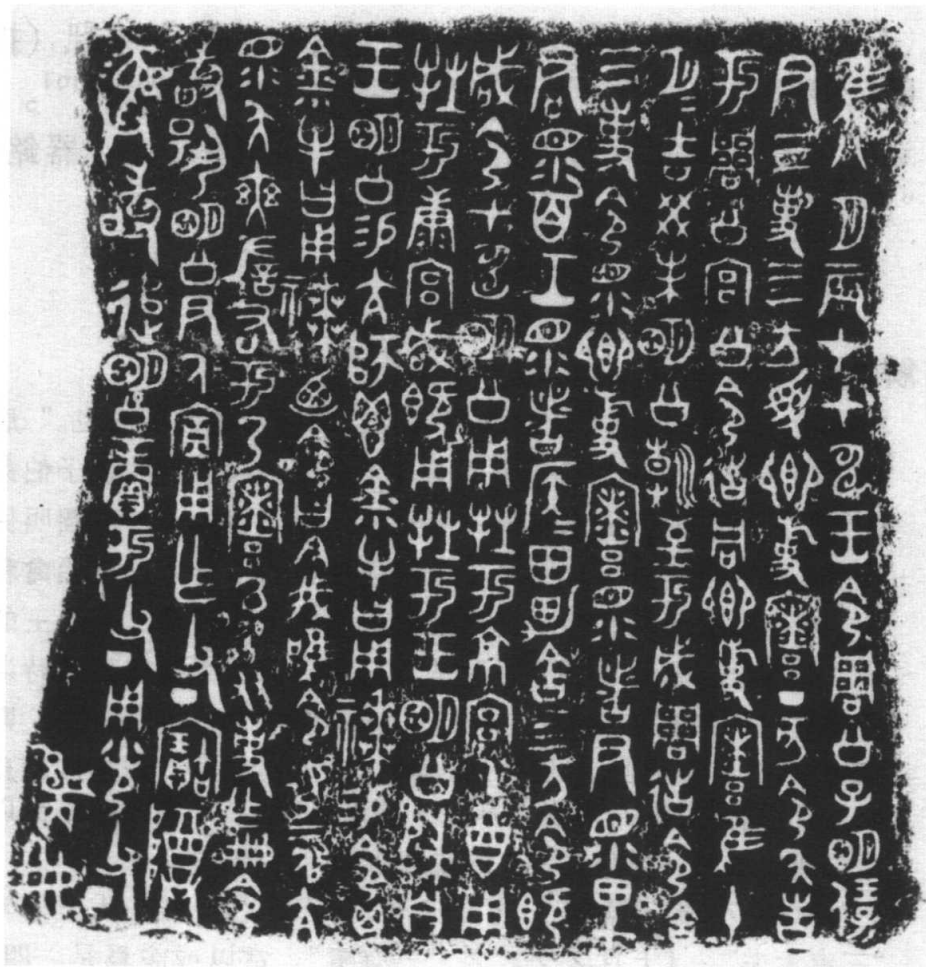 隹八月辰才甲申王令周公子明保
尹三事四方受卿事寮丁亥令夨告
于周公宮公令𢓊同卿事寮隹十
月月吉癸未明公朝至于成周𢓊令舍
三事令眔卿事寮眔者尹眔里
君眔百工眔者侯=田男舍四方令既
咸令甲申明公用牲于京宮乙酉用
牲于康宮咸既用牲于王明公歸自
王明公易亢師鬯金小牛曰用祓易令鬯
金小牛曰用祓廼令曰今我唯令女二人亢
眔夨奭左右于乃寮以乃友事乍冊令
敢揚明公尹氒宁用乍父丁寶尊彝
敢追明公賞于父丁用光父丁
冊